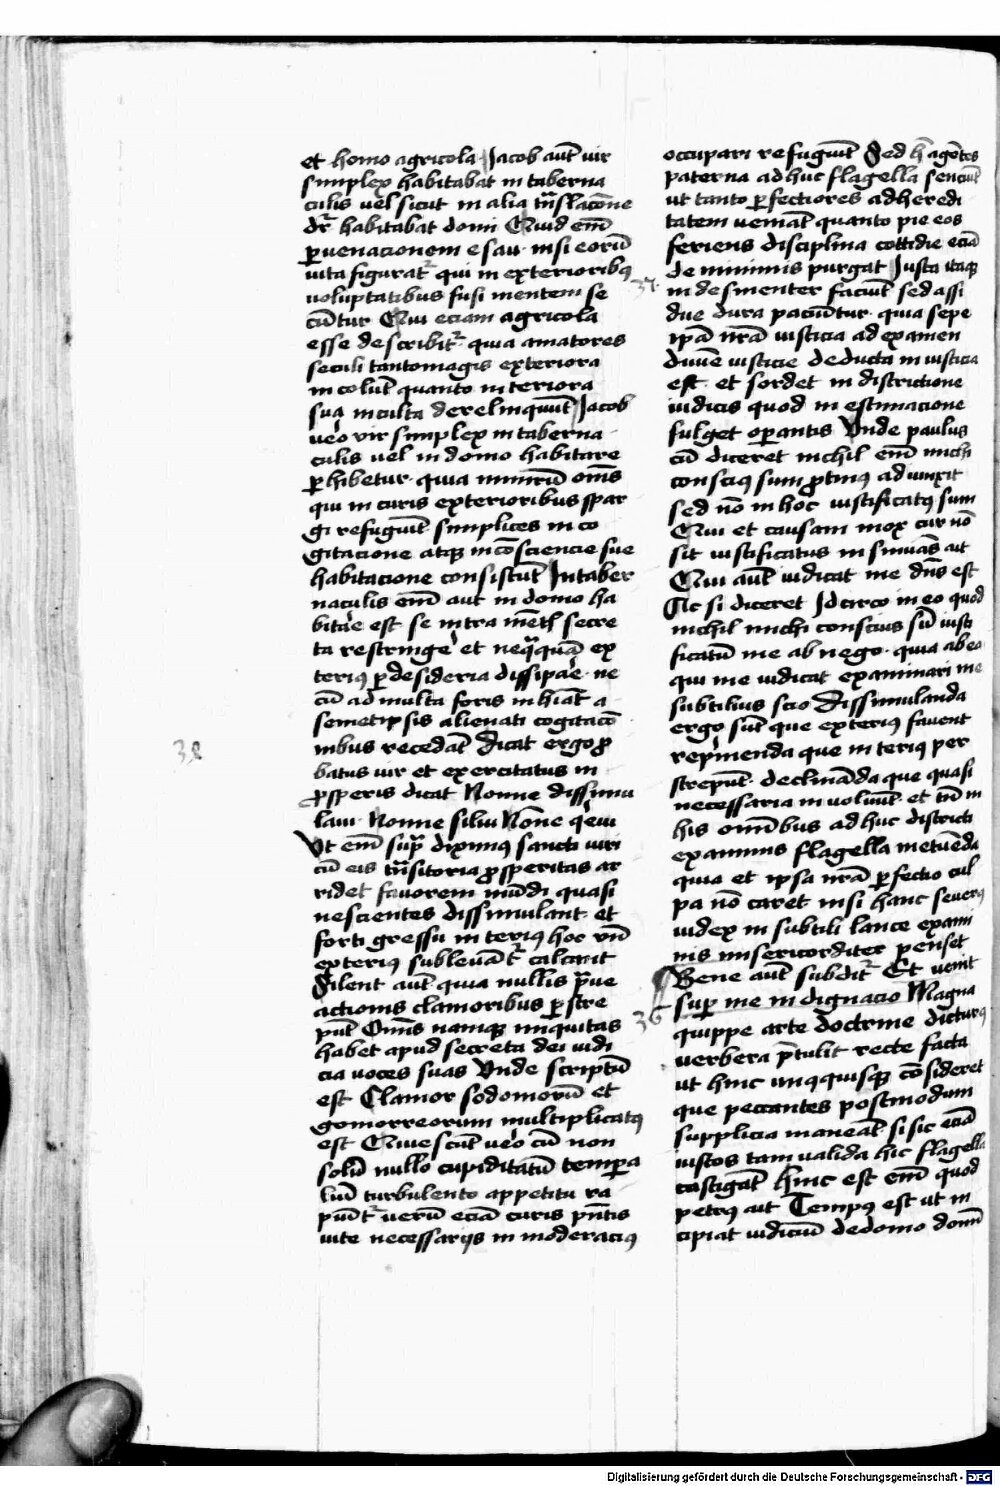 et homo agricola Jacob aūt vir
simplex habitabat in taberna
culis vel sicut in alia trāslacōne
dr̄ habitabat domi Quid em̄
ꝑ venacionem esau · nisi eorū
vita figurat᷑ qui in exterioribꝰ
voluptatibus fusi mentem se
cūtur Qui eciam agricola
esse describit᷑ · quia amatores
seculi tantomagis exteriora
in colūt quanto interiora
sua inculta derelinquūt Jacob
ueo vir simplex in taberna
culis vel in domo habitare
ꝑhibetur · quia nimirū om̄s
qui in curis exterioribus spar
gi refugiūt simplices in co
gitacione atqꝫ in cōsciencie sue
habitacione consistūt In taber
naculis em̄ aut in domo ha
bitare est se intra mētis secre
ta restringe et neq̄quā ex
teriꝰ ꝑ desideria dissipare · ne
cū ad multa foris inhiāt a
semetipsis alienati cogitacō
nibus recedāt Dicat ergo ꝓ
batus vir et exercitatus in
ꝓsperis dicat Nonne dissimu
laui · Nonne silui Nōne q̄eui
Ut em̄ sup̄ diximꝰ sancti viri
cū eis trāsitoria ꝓsperitas ar
ridet fauorem mūdi quasi
nescientes dissimulant · et
forti gressu interiꝰ hoc vn̄
exteriꝰ subleuāt᷑ calcant
Silent aūt quia nullis p̄ue
actionis clamoribus ꝑstre
pūt Omīs namqꝫ iniquitas
habet apud secreta dei iudi
cia voces suas Unde scriptū
est Clamor sodomorū et
gomorreorum multiplicatꝰ
est Quiescūt ueo cū non
solū nullo cupiditatū tempa
liū turbulento appetitu ra
piūt᷑ uerū eciā curis p̄ntis
vite necessarijs inmoderaciꝰ
occupari refugiūt Sed h̄ agētes
paterna adhuc flagella senciūt
ut tanto ꝑfectiores ad heredi
tatem ueniāt quanto pie eos
feriens disciplina cottidie eciā
de minimis purgat Justa itaqꝫ
37.
indesinenter faciūt sed assi
due dura paciūtur · quia sepe
ip̄a nr̄a iusticia ad examen
diuīe iusticie deducta iniusticia
est · et sordet in districtione
iudicis quod in estimacione
fulget oꝑantis Unde paulus
cū diceret nichil em̄ michi
consciꝰ sum ꝓtinꝰ adiunxit
sed nō in hoc iustificatꝰ sum
Qui et causam mox cur nō
sit iustificatus insinuās ait
Qui aūt iudicat me dn̄s est
Ac si diceret Jdcirco in eo quod
nichil michi conscius sū iusti
ficatū me abnego · quia ab eo
qui me iudicat examinari me
subtilius scio Dissimulanda
ergo sūt que exteriꝰ fauent
rep̄menda que interiꝰ per
strepūt · declināda que quasi
necessaria inuoluūt · et tn̄ in
his omībus adhuc districti
examinis flagella metuēda
quia et ipsa nr̄a ꝑfectio cul
pa nō caret nisi hanc seuerꝰ
iudex in subtili lance exami
nis misericorditer penset
Bene aūt subdit᷑ Et venit
sup me indignacio Magna
36
quippe arte doctrine dicturꝰ
verbera p̄tulit recte facta
ut hinc unꝰquisqꝫ cōsideret
que peccantes postmodum
supplicia maneāt si sic eciā
iustos tam valida hic flagella
castigāt Hinc est em̄ quod
petrꝰ ait Tempꝰ est ut in
cipiat iudiciū de domo domī
38
Digitalisierung gefördert durch die Deutsche Forschungsgemeinschaft - DFG